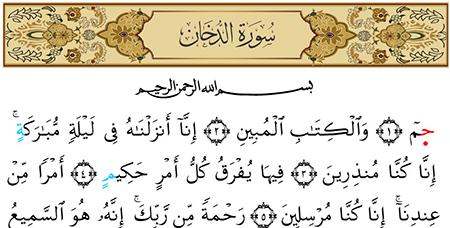 سُورَةُ الدُّخَانِ
بِسْمِ اللهِ الرَّحْمٰنِ الرَّحِيمِ
حمٓ ﴿١﴾ وَالْكِتَابِ الْمُبِينِ ﴿٢﴾ إِنَّآ أَنزَلْنَاهُ فِى لَيْلَةٍ مُّبَارَكَةٍۚ
إِنَّا كُنَّا مُنذِرِينَ ﴿٣﴾ فِيهَا يُفْرَقُ كُلُّ أَمْرٍ حَكِيمٍ ﴿٤﴾ أَمْرًا مِّنْ
عِندِنَآۚ إِنَّا كُنَّا مُرْسِلِينَ ﴿٥﴾ رَحْمَةً مِّن رَّبِّكَۚ إِنَّهُۥ هُوَ السَّمِيعُ